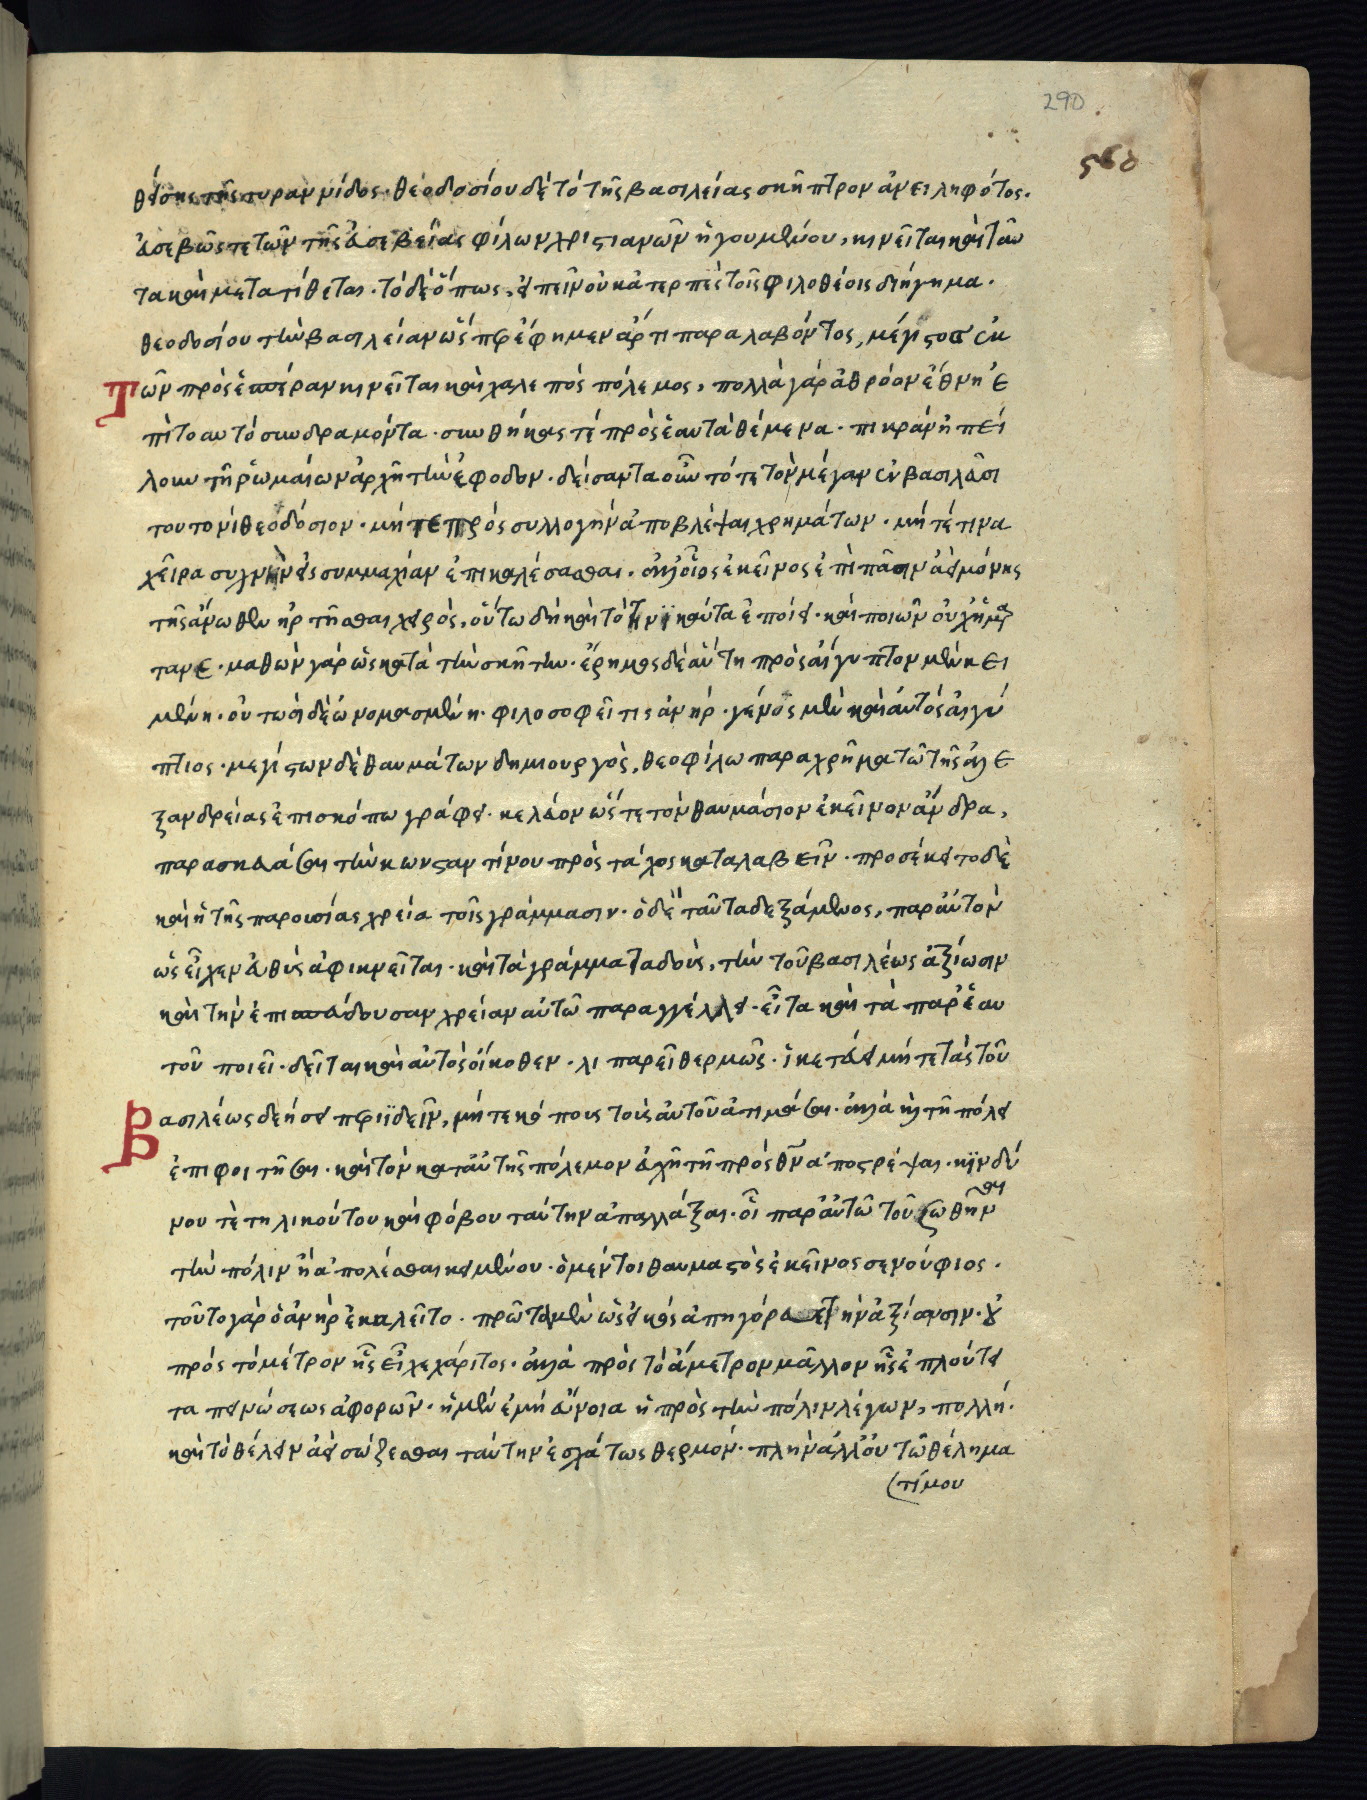 290
θείσης τῆς τυραννίδος· θεοδοσίου δὲ τὸ τῆς βασιλείας σκῆπτρον ἀνειληφότος.
εὐσεβῶς τε τῶν τῆς εὐσεβείας φίλων χριστιανῶν ἡγουμένου, κινεῖται καὶ ταῦ
τα καὶ μετατίθεται· τὸ δὲ ὅπως, εἰπεῖν οὐκ ἀτερπὲς τοῖς φιλοθέοις διήγημα.
θεοδοσίου τὴν βασιλείαν ὥσπερ ἔφημεν ἄρτι παραλαβόντος, μέγιστος ἐκ
τῶν πρὸς ἑσπέραν κινεῖται καὶ χαλεπὸς πόλεμος, πολλὰ γὰρ ἀθρόον ἔθνη ἐ
πὶ τοαυτὸ συνδραμόντα· συνθήκας τὲ πρὸς ἑαυτὰ θέμενα· πικρὰν ἠπεί
λουν τῇ ῥωμαίων ἀρχῇ τὴν ἔφοδον· δείσαντα οὖν τότε τὸν μέγαν ἐν βασιλεῦσι
τουτονὶ θεοδόσιον· μήτε πρὸς συλλογὴν ἀποβλέψαι χρημάτων· μήτέ τινα
χεῖρα συχνὴν εἰς συμμαχίαν ἐπικαλέσασθαι· ἀλλ' οἷος ἐκεῖνος ἐπὶ πᾶσιν ἀεὶ μόνης
τῆς ἄνωθεν ἠρτῆσθαι χειρὸς, οὕτω δὴ καὶ τὸ τηνικαῦτα ἐποίει· καὶ ποιῶν οὐχ ἡμάρ
τανε· μαθὼν γὰρ ὡς κατὰ τὴν σκῆτιν· ἔρημος δὲ αὕτη πρὸς αἴγυπτον μὲν κει
μένη· οὑτωσὶ δὲ ὠνομασμένη· φιλοσοφεῖ τις ἀνήρ· γένος μὲν καὶ αὐτὸς αἰγύ
πτιος· μεγίστων δὲ θαυμάτων δημιουργός, θεοφίλω παραχρῆμα τῶ τῆς ἀλε
ξανδρείας ἐπισκόπω γράφει· κελεύων ὥστε τὸν θαυμάσιον ἐκεῖνον ἄνδρα,
παρασκευάσαι τὴν κωνσταντίνου πρὸς τάχος καταλαβεῖν· προσέκειτο δὲ
καὶ ἡ τῆς παρουσίας χρεία τοῖς γράμμασιν· ὁ δὲ ταῦτα δεξάμενος, παρ' αὐτὸν
ὡς εἶχεν εὐθὺς ἀφικνεῖται· καὶ τὰ γράμματα δοὺς, τὴν τοῦ βασιλέως ἀξίωσιν
καὶ τὴν ἐπισπεύδουσαν χρείαν αὐτῶ παραγγέλλει· εἶτα καὶ τὰ παρ' ἑαυ
τοῦ ποιεῖ· δεῖται καὶ αὐτὸς οἴκοθεν· λιπαρεῖ θερμῶς· ἱκετεύει μήτε τὰς τοῦ
βασιλέως δεήσεις περιϊδεῖν, μήτε κόπους τοὺς αὐτοῦ ἀτιμάσαι· ἀλλὰ καὶ τῇ πόλει
ἐπιφοιτῆσαι· καὶ τὸν κατ' αὐτῆς πόλεμον εὐχῇ τῇ πρὸς θν ἀποστρέψαι· κινδύ
νου τὲ τηλικούτου καὶ φόβου ταύτην ἀπαλλάξαι· οἷ παρ' αὐτῶ τοῦ σωθῆναι
τὴν πόλιν ἢ ἀπολέσθαι κειμένου· ὁ μέντοι θαυμαστὸς ἐκεῖνος σενούφιος.
τοῦτο γὰρ ὁ ἀνὴρ ἐκαλεῖτο· πρῶτα μὲν ὡς εἰκὸς ἀπηγόρευε τὴν ἀξίωσιν· οὐ
πρὸς τὸ μέτρον ἧς εἶχε χάριτος· ἀλλὰ πρὸς τὸ ἄμετρον μᾶλλον ἧς ἐπλούτει
ταπεινώσεως ἀφορῶν· ἡ μὲν ἐμὴ εὔνοια ἡ πρὸς τὴν πόλιν λέγων, πολλή.
καὶ τὸ θέλειν ἀεὶ σώζεσθαι ταύτην ἐσχάτως θερμόν· πλὴν ἀλλ' οὐ τῶ θέλημα
τί μου